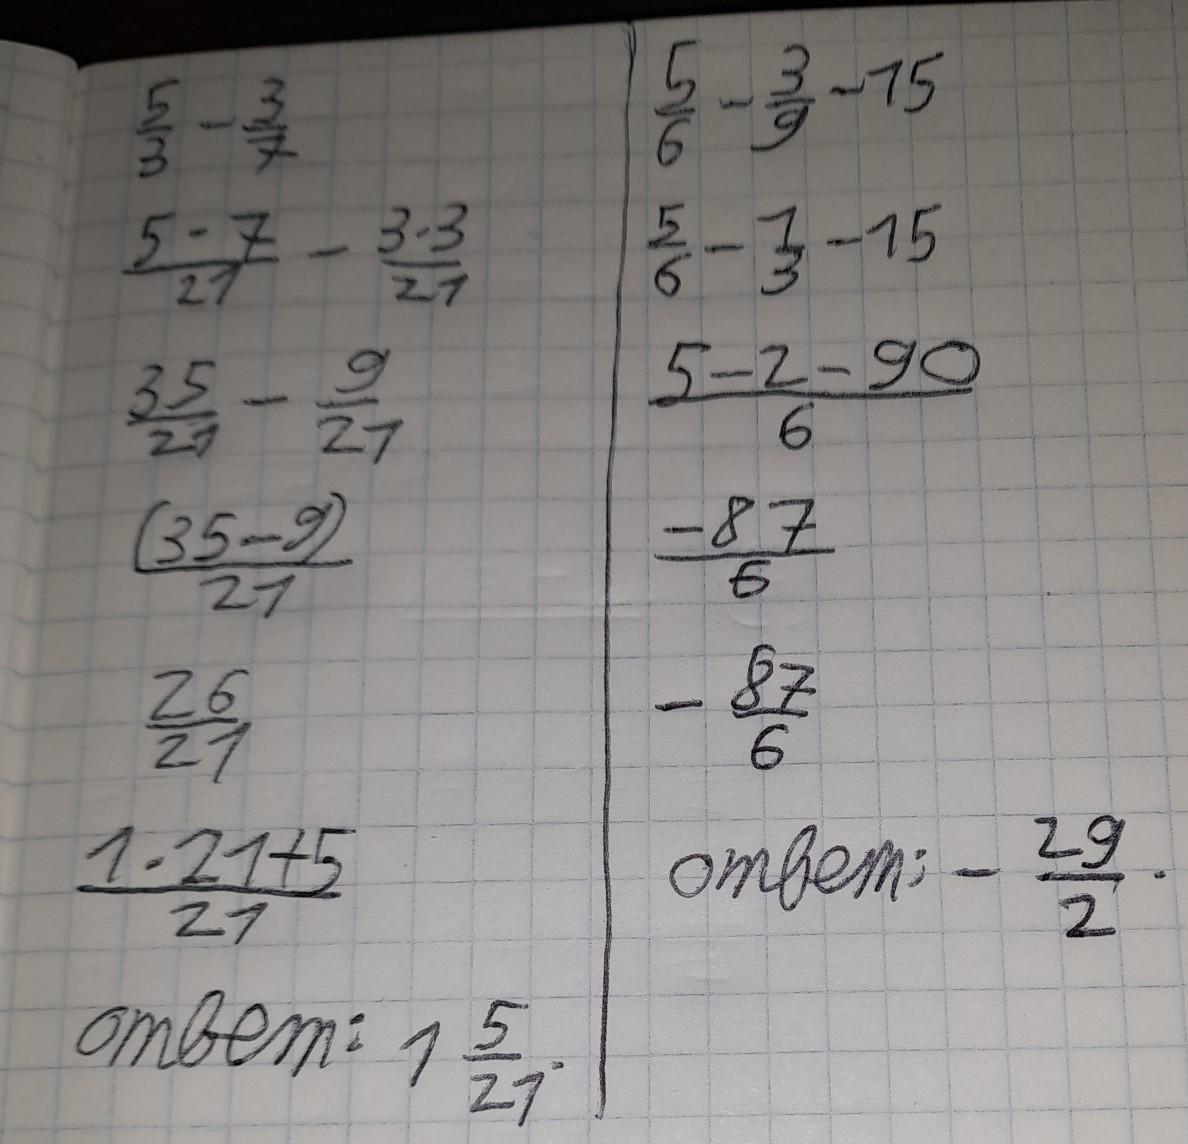 5/3 - 3/7
5·7/21 - 3·3/21
35/21 - 9/21
(35-9)/21
26/21
1·21+5/21
ответ: 1 5/21.
5/6 - 3/9 - 15
5/6 - 1/3 - 15
5-2-90/6
-87/6
- 87/6
ответ: - 29/2.